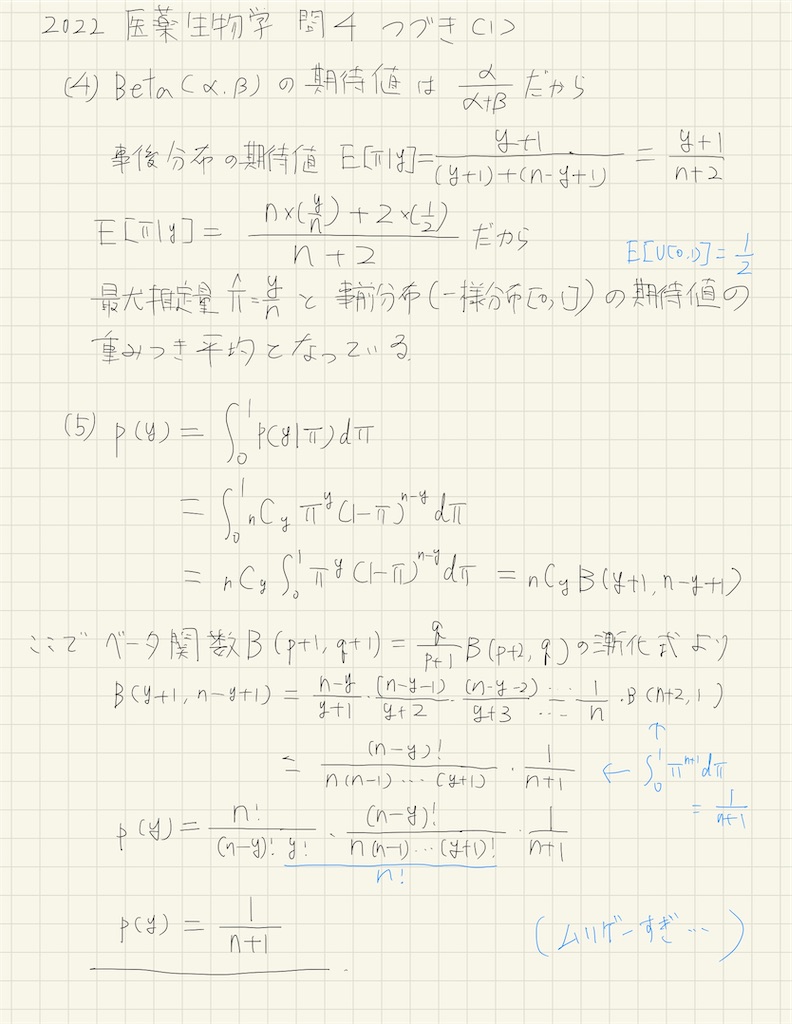 2022 医薬生物学 問4 つづき(1)
(4) Beta(α.β) の期待値は α/(α+β) だから
事後分布の期待値 E[π|y] = (y+1)/((y+1)+(n-y+1)) = (y+1)/(n+2)
E[π|y] = (n×(y/n) + 2×(1/2))/(n+2) だから
E[U(0,1)] = 1/2
最尤推定量 π̂=y/n と 事前分布(一様分布[0,1])の期待値の
重みつき平均となっている.
(5) p(y) = ∫₀¹ p(y|π)dπ
= ∫₀¹ nCy π^y (1-π)^(n-y) dπ
= nCy ∫₀¹ π^y (1-π)^(n-y) dπ = nCy B(y+1, n-y+1)
ここで ベータ関数 B(p+1, q+1) = q/(p+1) B(p+2, q) の漸化式より
B(y+1, n-y+1) = (n-y)/(y+1) · (n-y-1)/(y+2) · (n-y-2)/(y+3) … 1/n · B(n+2, 1)
= (n-y)!/(n(n-1)…(y+1)) · 1/(n+1) ← ∫₀¹ π^(n+1) dπ
= 1/(n+1)
p(y) = n!/((n-y)! y!) · (n-y)!/(n(n-1)…(y+1)!) · 1/(n+1)
n!
p(y) = 1/(n+1)
(ムリゲーすぎ…)